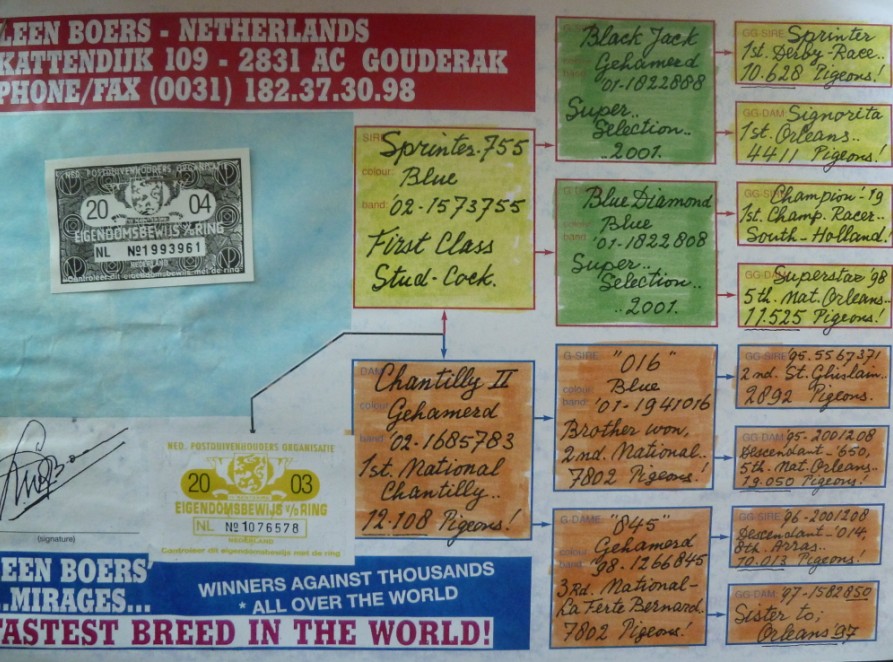 LEEN BOERS - NETHERLANDS
KATTENDIJK 109 - 2831 AC GOUDERAK
PHONE/FAX (0031) 182.37.30.98
NED. POSTDUIVENHOUDERS ORGANISATIE
20 04
EIGENDOMSBEWIJS v/d RING
NL No 1993961
NEDERLAND
Controleer dit eigendomsbewijs met de ring
SIRE
Sprinter.755
colour:
Blue
band:
'02-1573755
First Class
Stud-Cock.
DAM
Chantilly II
colour
Gehamerd
band
'02-1685783
1st. National
Chantilly..
12.108 Pigeons!
Black Jack
Gehamerd
band
'01-1822888
Super..
Selection..
..2001.
Blue Diamond
Blue
'01-1822808
Super..
Selection..
..2001.
G-SIRE
"016"
colour
Blue
band:
'01-1941016
Brother won,
2nd. National..
7802 Pigeons!
G-DAME
"845"
colour
Gehamerd
band
98-1266845
3Rd. National-
La Ferte Bernard..
7802 Pigeons!
GG-SIRE
Sprinter
1st. Derby-Race..
10.628 Pigeons!
GG-DAM
Signorita
1st. Orleans..
4411 Pigeons!
GG-SIRE
Champion'-19
1st. Champ. Racer..
South-Holland!
GG-DAM
Superstar '98
5th. Nat. Orleans..
11.525 Pigeons!
GG-SIRE '95.5567371
2nd. St. Ghislain..
2892 Pigeons.
GG DAM '95-2001208
Descendant-'650,
5th. Nat. Orleans..
19.050 Pigeons!
GG-SIRE '96-2001208
Descendant-'014,
8th. Arras..
10.013 Pigeons!
GG DAM '97-1582850
Sister to;
Orleans '97
(signature)
NED. POSTDUIVENHOUDERS ORGANISATIE
20 03
EIGENDOMSBEWIJS v/d RING
NL No 1076578
NEDERLAND
Controleer dit eigendomsbewijs met de ring
EEN BOERS'
..MIRAGES...
WINNERS AGAINST THOUSANDS
* ALL OVER THE WORLD
FASTEST BREED IN THE WORLD!